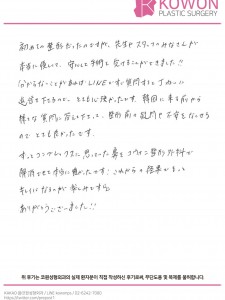 KOWON
PLASTIC SURGERY
初めての整形だったのですが、先生やスタッフのみなさんが
本当に優しくて、安心して手術を受けることができました!!
分からないことがあればLINEですぐ質問すると丁ねいに
返答を下さるので とても心強かったです。韓国に来る前から
様々な質問に答えて下さって、整形前の疑問や不安をなくせる
のでとてもよかったです。
ずっとコンプレックスに思っていた鼻をコウォン整形外科で
解消できて本当に良かったです!これからの経過がもっと
キレイになるのが楽しみですね
ありがとうございました!!
위 후기는 코원성형외과의 실제 환자분이 직접 작성하신 후기로써, 무단도용 및 복제를 불허합니다.
KAKAO @코원성형외과 / LINE kowonps / 02-